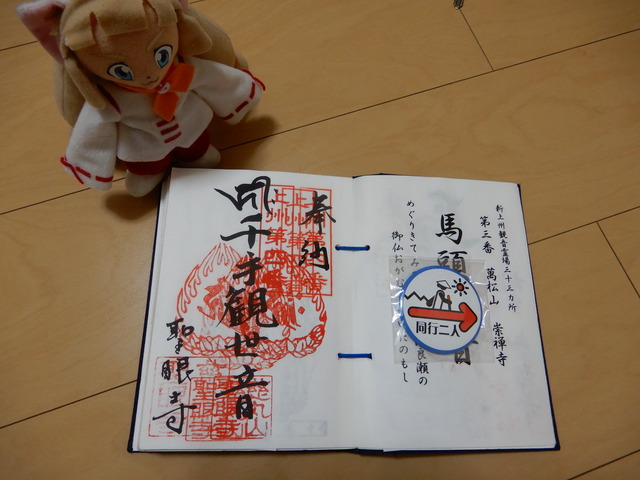 新上州観音霊場三十三カ所
第三番 萬松山 崇禅寺
馬頭
音
めぐりきて み
御仏おがむ
良瀬の
たのもし
同行二人
奉納
千手観世音
聖眼寺
上州第四番